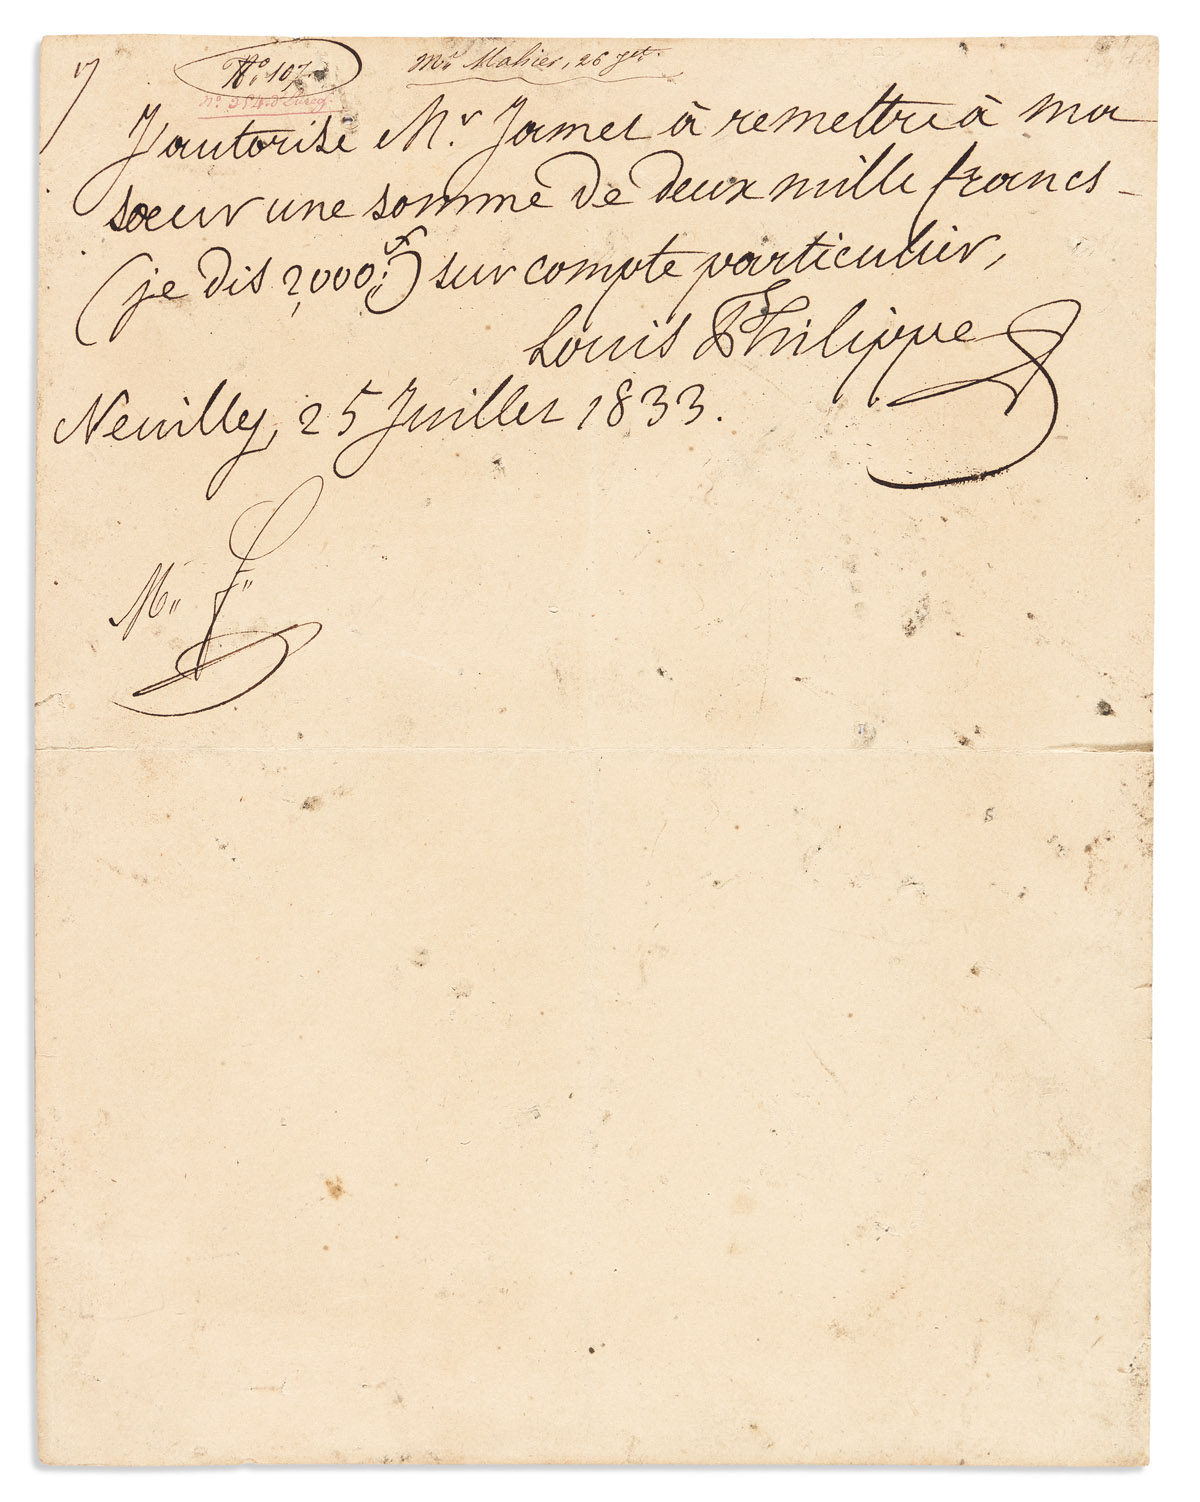 N.º 107.
Mr. Mahier, 26 Jet.
N.º 254. d'Enreg.
J'autorise M.r Jamet à remettre à ma
sœur une somme de deux mille francs –
(je dis 2,000 f.) sur compte particulier,
Louis Philippe
Neuilly, 25 Juillet 1833.